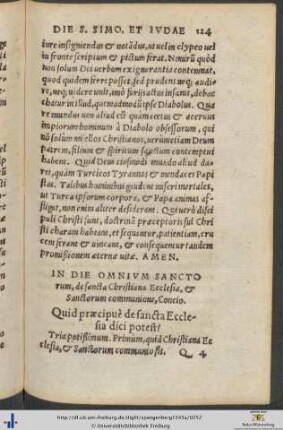 DIE S. SIMO. ET IVDAE 124
iure insigniendus & notãdus, ut uel in clypeo uel
in fronte scriptum & pictum ferat. Nimirũ quòd
non solum Dei uerbum ex ignorantia contemnat,
quod quidem ferre posset, sed prudens, neq; audi=
re, neq; uidere uult, imò furijs actus insanit, debac
chatur in illud, quemadmodũ ipse Diabolus. Qua
re mundus non aliud est quàm coetus & aceruus
impiorum hominum à Diabolo obsessorum, qui
nõ solum mites Christianos, uerũ etiam Deum
patrem, filium & spiritum sanctum contemptui
habent. Quid Deus eiusmodi mundo aliud da=
ret, quàm Turcicos Tyrannos & mendaces Papi
stas. Talibus hominibus gaudent miseri mortales,
ut Turca ipsorum corpora, & Papa animas af=
fligat, non enim aliter desiderant. Qui uerò disci
puli Christi sunt, doctrinã præceptoris sui Chri
sti charam habeant, et sequantur, patientiam, cru
cem ferant & uincant, & consequentur tandem
promissionem æternæ uitæ. AMEN.
IN DIE OMNIVM SANCTO
rum, de sancta Christiana Ecclesia, &
Sanctorum communione, Concio.
Quid præcipuè de sancta Eccle=
sia dici potest?
Tria potissimum. Primum, quid Christiana Ec
clesia, & Sanctorum communio sit. Q 4
http://dl.ub.uni-freiburg.de/diglit/spangenberg1545a/0252
© Universitätsbibliothek Freiburg
Baden-Württemberg